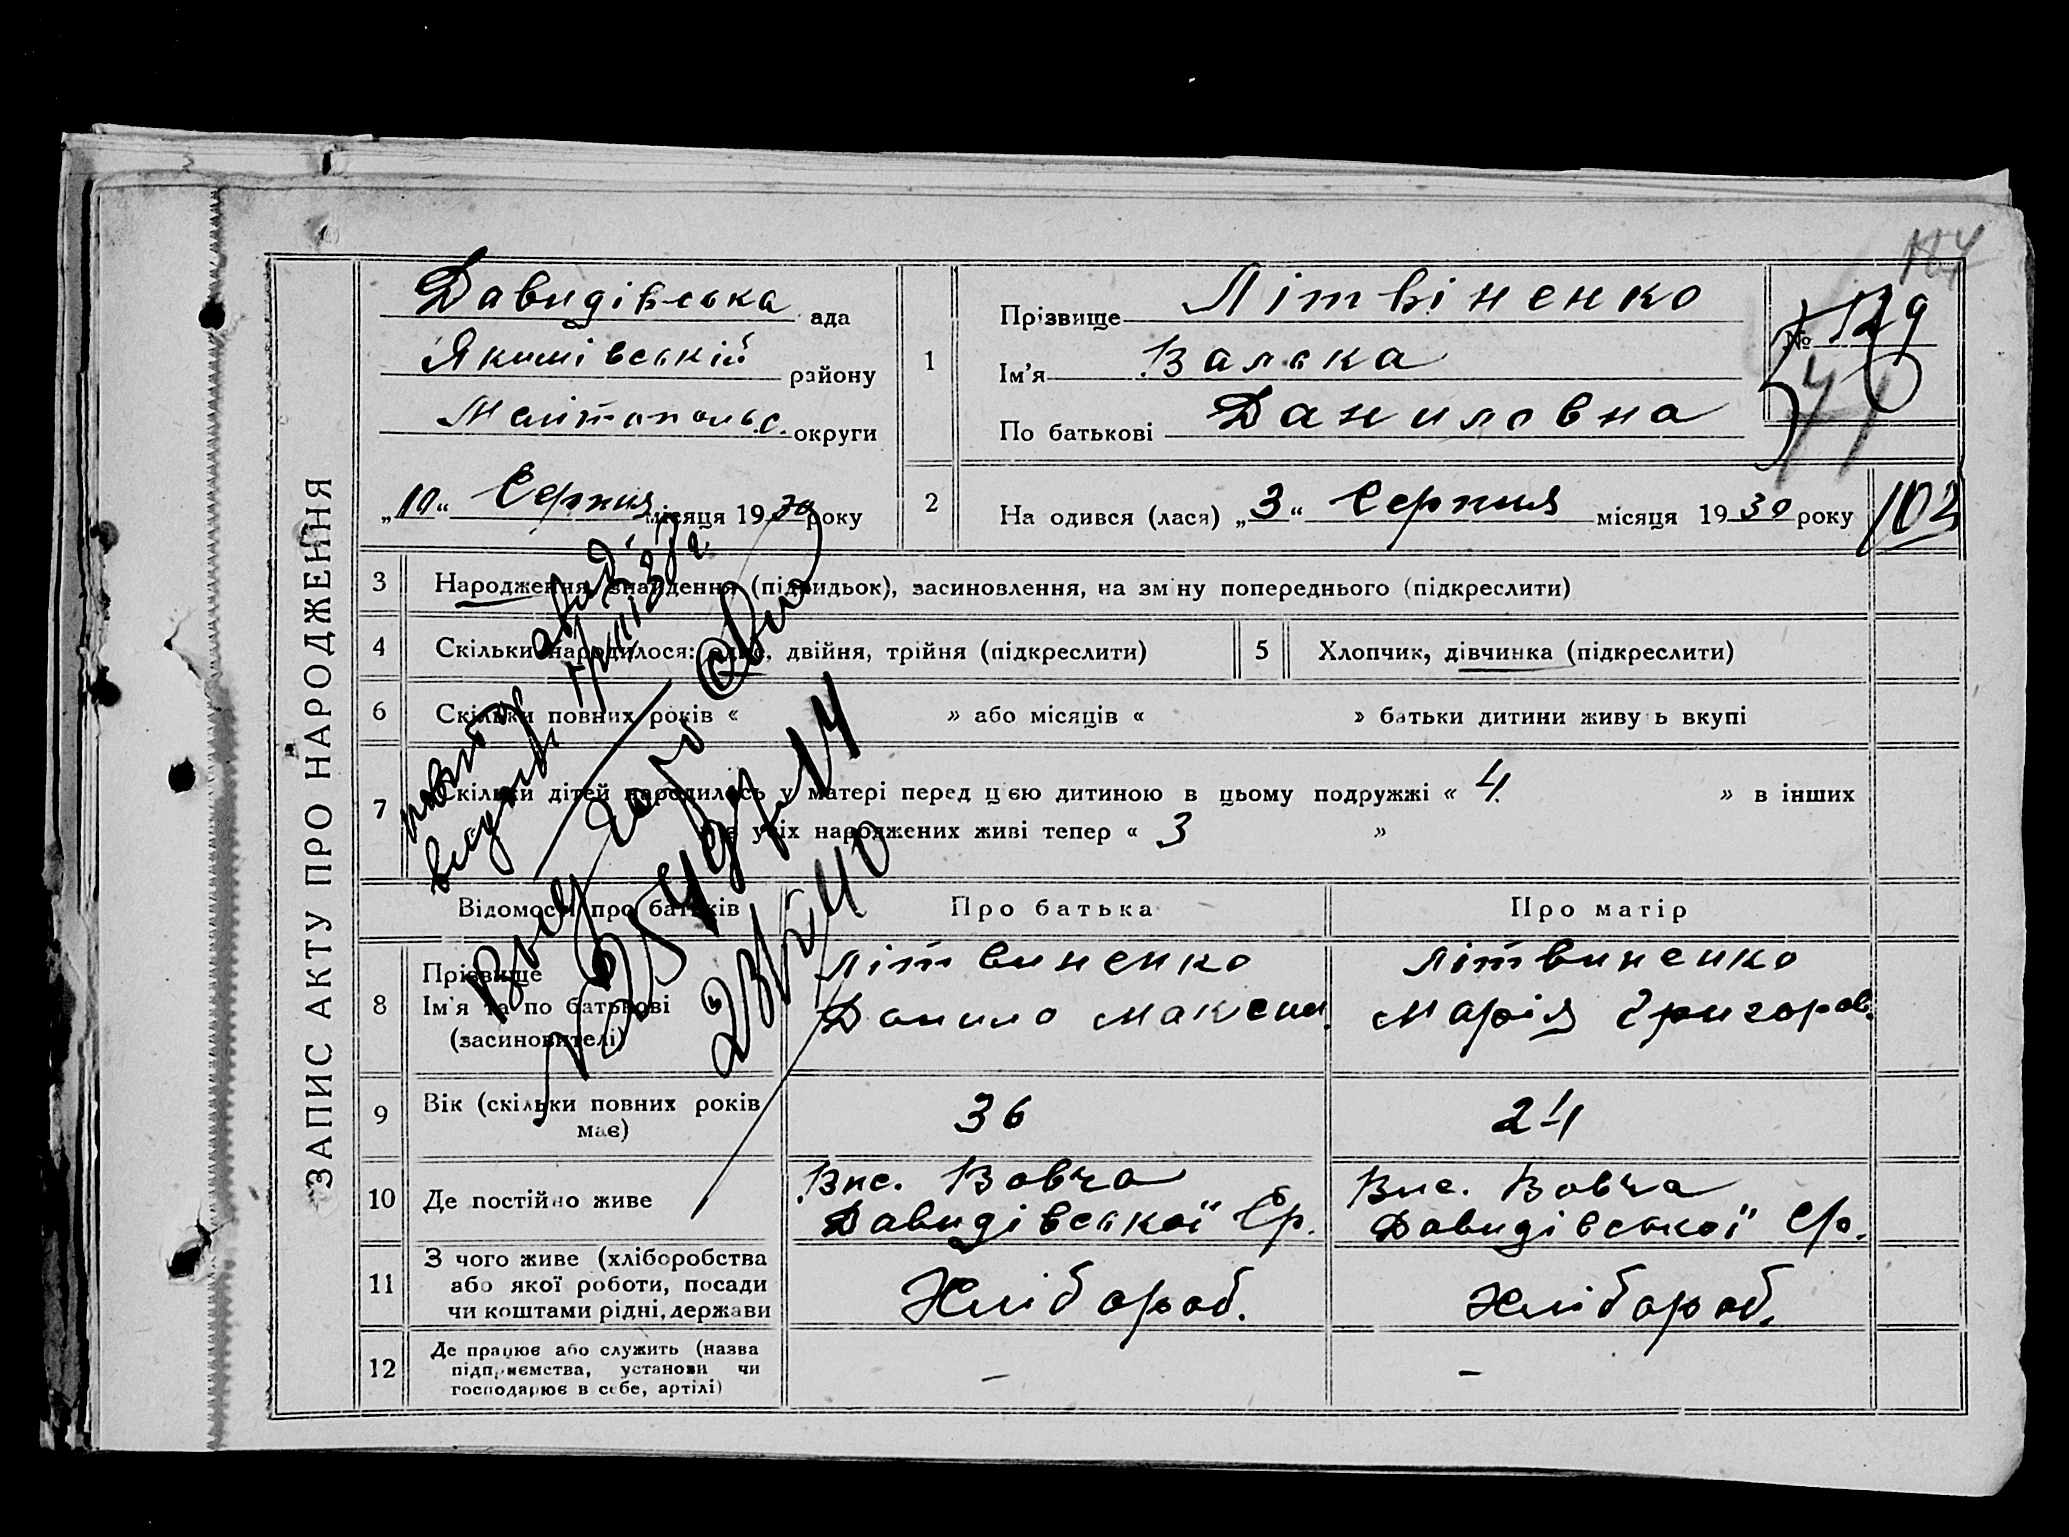 ЗАПИС АКТУ ПРО НАРОДЖЕННЯ
Давидівська ада
Якимівській району
Мелітопольс. округи
„10“ Серпня місяця 1930 року
1
Прізвище Літвіненко
Ім'я Валька
По батькові Даниловна
№ 129
2
На одився (лася) „3“ Серпня місяця 1930 року
103
3 Народження, знайдення (підкидьок), засиновлення, на зміну попереднього (підкреслити)
4 Скільки народилося: одно, двійня, трійня (підкреслити)
5 Хлопчик, дівчинка (підкреслити)
6 Скільки повних років « » або місяців « » батьки дитини живуть вкупі
7 Скільки дітей народилось у матері перед цією дитиною в цьому подружжі « 4 » в інших
усіх народжених живі тепер « 3 »
Відомості про батьків
Про батька
Про матір
8 Прізвище
Ім'я та по батькові
(засиновителі)
Літвиненко
Данило Максим.
Літвиненко
Марія Григоров.
9 Вік (скільки повних років
має)
36
24
10 Де постійно живе
Вис. Вовча
Давидівської Ср.
Вис. Вовча
Давидівської С/р.
11 З чого живе (хліборобства
або якої роботи, посади
чи коштами рідні, держави
Хлібороб.
Хлібороб.
12 Де працює або служить (назва
підприємства, установи чи
господарює в себе, артілі)
–
–
повтор
23/IV 40